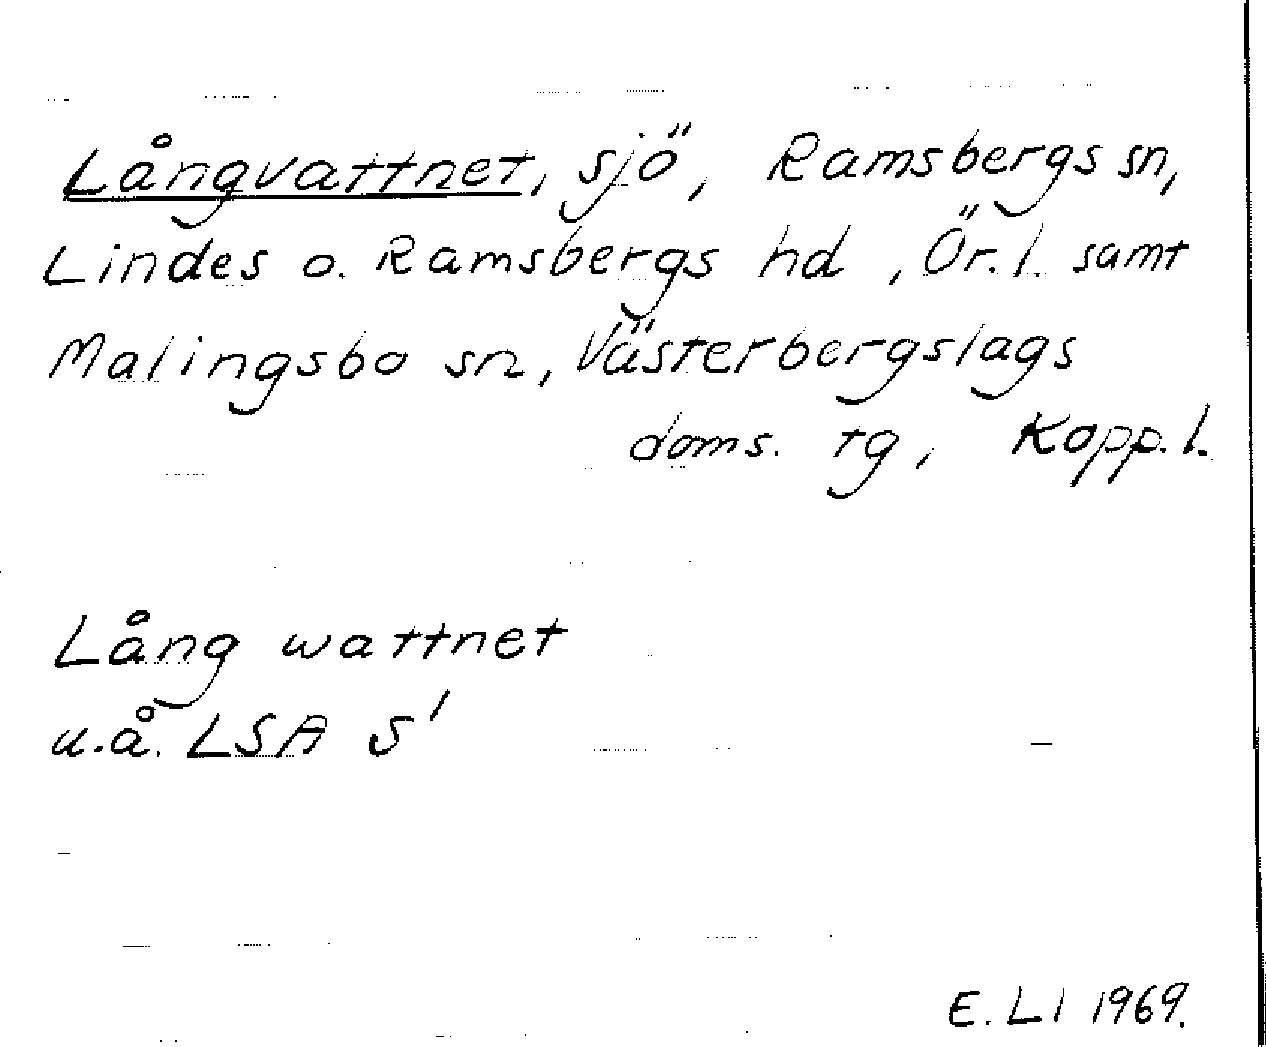 Långvattnet, sjö, Ramsbergs sn,
Lindes o. Ramsbergs hd, Ör. l. samt
Malingsbo sn, Västerbergslags
doms. tg, Kopp. l.
Lång wattnet
u.å. LSA S'
E. LI 1969.